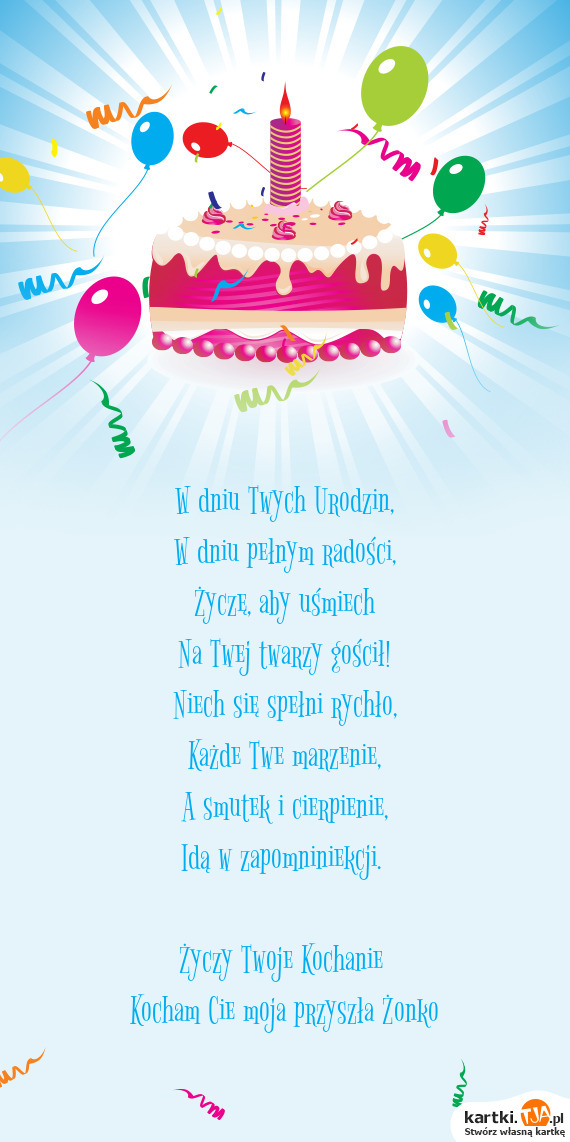 W dniu Twych Urodzin,
W dniu pełnym radości,
Życzę, aby uśmiech
Na Twej twarzy gościł!
Niech się spełni rychło,
Każde Twe marzenie,
A smutek i cierpienie,
Idą w zapomniniekcji.
Życzy Twoje Kochanie
Kocham Cie moja przyszła Żonko
kartki.TJA.pl
Stwórz własną kartkę